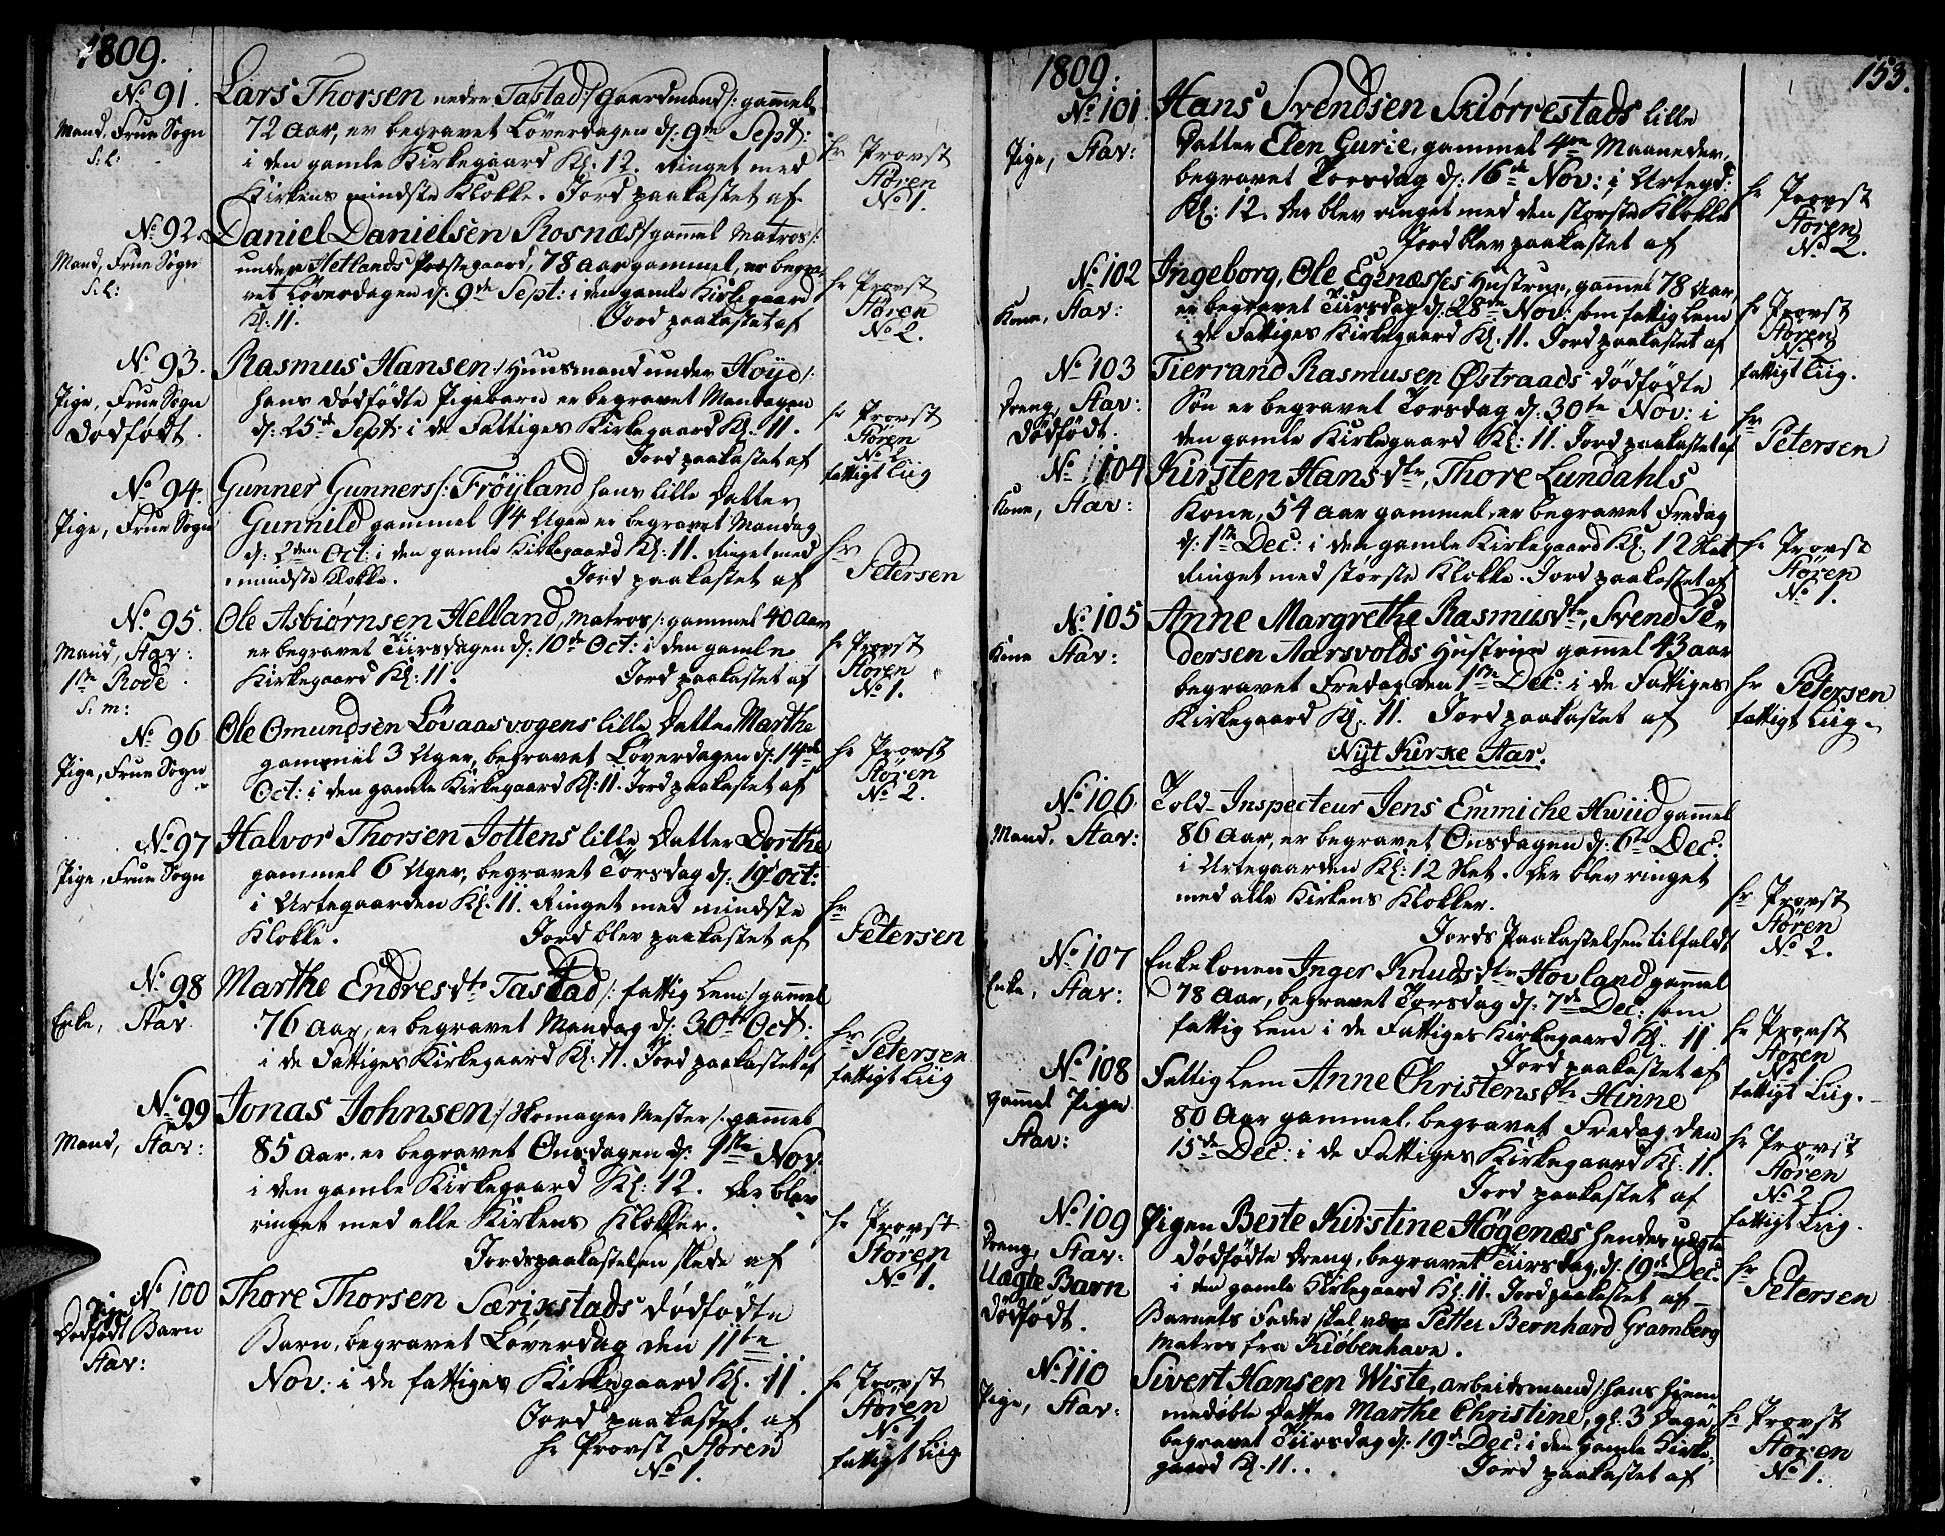 1809.
No. 91.
Mand. Frue Sogn
S: L:
Lars Thorsen nedre Tastad /: gaardmand :/ gammel
72 Aar, er begravet Løverdagen d: 9de Sept:
i den gamle Kirkegaard Kl: 12. Ringet med
Kirkens mindste Klokke. Jord paakastet af
hr Provst
Støren
No 1.
No. 92.
Mand, Frue Sogn
S: L:
Daniel Danielsen Rosnæs /: gammel Matros :/
under Hetlands Præstegaard, 78 Aar gammel, er begra-
vet Løverdagen d: 9de Sept: i den gamle Kirkegaard
Kl: 11. Jord paakastet af
hr Provst
Støren
No 2.
No. 93.
Pige, Frue Sogn
Dødfødt
Rasmus Hansen /: Huusmand under Høye :/
hans dødfødte Pigebarn er begravet Mandagen
d: 25de Sept: i de Fattiges Kirkegaard Kl: 11.
Jord paakastet af
hr Provst
Støren
No 2
fattigt Liig
No. 94.
Pige, Frue Sogn
Gunner Gunners /: Frøyland hans lille Datter
Gunnild gammel 14 Uger er begravet Mandag
d: 2den Oct: i den gamle Kirkegaard Kl: 11. Ringet med
mindste Klokke. Jord paakastet af
hr
Petersen
No. 95.
Mand, Stav:
1ste Rode
S: m:
Ole Asbiørnsen Helland, Matros /: gammel 40 Aar
er begravet Tiirsdagen d: 10de Oct: i den gamle
Kirkegaard Kl: 11. Jord paakastet af
hr Provst
Støren
No 1.
No. 96
Pige, Frue Sogn
Ole Omundsen Løvaasvogens lille Datter Marthe
gammel 3 Uger, begravet Løverdagen d: 14de
Oct: i den gamle Kirkegaard Kl: 11. Jord paakastet af
hr Provst
Støren
No 2.
No. 97
Pige, Frue Sogn
Halvor Thorsen Jottens lille Datter Dorthe
gammel 6 Uger, begravet Torsdag d: 19de Oct:
i Urtegaarden Kl: 11. Ringet med mindste
Klokke. Jord blev paakastet af
hr
Petersen
No. 98
Enke, Stav
Marthe Endresdtr Tastad /: fattig Lem :/ gammel
76 Aar, er begravet Mandag d: 30te Oct:
i de Fattiges Kirkegaard Kl: 11. Jord paakastet af
hr
Petersen
fattigt Liig
No. 99
Mand, Stav:
Jonas Johnsen /: Skomager Mester :/ gammel
85 Aar. er begravet Onsdagen d: 1ste Nov:
i den gamle Kirkegaard Kl: 12. Der blev
ringet med alle Kirkens Klokker.
Jordspaakastelsen skede af
hr Provst
Støren
No 1.
No 100
Pige
Dødfødt Barn
Stav:
Thore Thorsen Særixstads dødfødte
Barn, begravet Løverdag den 11te
Nov: i de fattiges Kirkegaard Kl. 11.
Jord paakastet af
hr Provst Støren
No 1.
hr Provst
Støren
No 1
fattigt Liig
1809.
153.
No. 101
Pige, Stav:
Hans Svendsen Skiørrestads lille
Datter Elen Gurie, gammel 4re Maaneder,
begravet Torsdag d: 16de Nov: i Urtegd:
Kl: 12. Der blev ringet med den største Klokke
Jord blev paakastet af
hr Provst
Støren
No 2.
No. 102
Kone, Stav:
Ingeborg, Ole Egenæsses Hustrue, gammel 78 Aar,
er begravet Tiirsdag d: 28de Nov: som fattig Lem
i de Fattiges Kirkegaard Kl: 11. Jord paakastet af
hr Provst
Støren
No 1
fattigt Liig.
No 103
Dreng, Stav:
Dødfødt.
Tierrand Rasmusen Østraads dødfødte
Søn er begravet Torsdag d: 30te Nov: i
den gamle Kirkegaard Kl: 11. Jord paakastet af
hr
Petersen
No 104
Kone, Stav:
Kirsten Hansdtr, Thore Lundahls
Kone, 54 Aar gammel, er begravet Fredag
d: 1ste Dec: i den gamle Kirkegaard Kl: 12 Slet
Ringet med største Klokke. Jord paakastet af
hr Provst
Støren
No 1.
No. 105
Kone Stav:
Anne Margrethe Rasmusdtr, Svend Pe-
dersen Aarsvolds Hustrue gammel 43 aar
begravet Fredag den 1ste Dec: i de Fattiges
Kirkegaard Kl. 11. Jord paakastet af
hr Petersen
fattigt Liig.
Nyt Kirke Aar.
No. 106
Mand. Stav:
Told-Inspecteur Jens Emmiche Hwiid gammel
86 Aar, er begravet Onsdagen d: 6te Dec.
i Urtegaarden Kl: 12 Slet. Der blev ringet
med alle Kirkens Klokker.
Jords Paakastelsen tilfaldt
hr Provst
Støren
No 2.
No. 107
Enke, Stav:
Enkekonen Inger Knudsdtr Hovland gammel
78 Aar, begravet Torsdag d: 7de Dec: som
fattig Lem i de Fattiges Kirkegaard Kl. 11.
Jord paakastet af
hr Provst
Støren
No 1
fattigt Liig.
No. 108
gammel Pige
Stav:
Fattig Lem Anne Christensdtr Hinne
80 Aar gammel, begravet Fredag den
15de Dec: i de Fattiges Kirkegaard Kl: 11.
Jord paakastet af
hr Provst
Støren
No 2
fattigt Liig.
No. 109
Dreng, Stav:
Uægte Barn
Dødfødt.
Pigen Berte Kirstine Høgenæs hendes uægte
dødfødte Dreng, begravet Tiirsdag, d: 19de Dec:
i den gamle Kirkegaard Kl: 11. Jord paakastet af
Barnets Fader skal være Petter Bernhard Gramberg
Matros fra Kiøbenhavn.
hr
Petersen
No. 110
Pige, Stav:
Sivert Hansen Wiste, arbeidsmand /: hans hjem-
medøbte Datter Marthe Christine, gl: 3 Dage
begravet Tiirsdag d: 19de Dec: i den gamle Kirke-
gaard Kl. 11. Jord paakastet af
hr Provst
Støren
No 1.